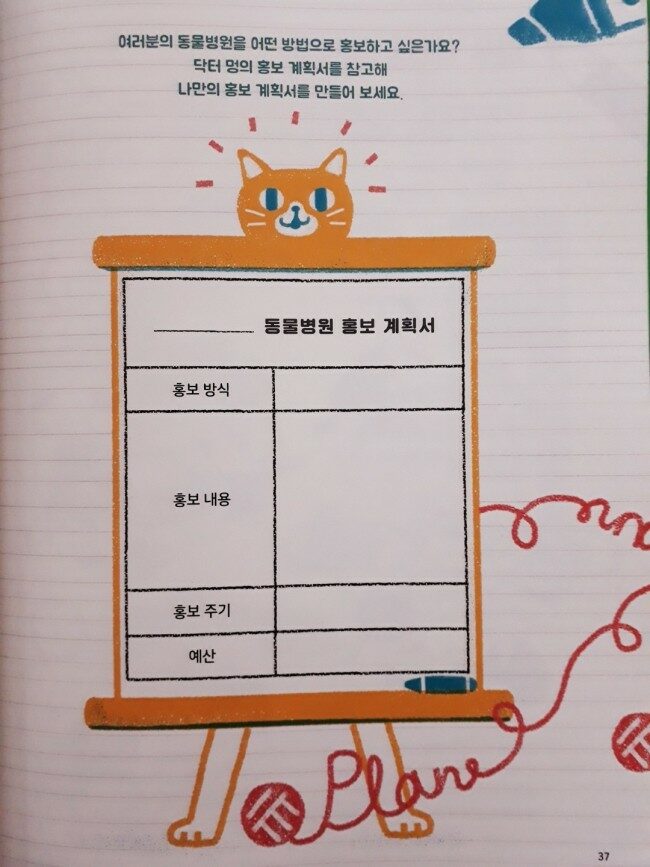 여러분의 동물병원을 어떤 방법으로 홍보하고 싶은가요?
닥터 멍의 홍보 계획서를 참고해
나만의 홍보 계획서를 만들어 보세요.
동물병원 홍보 계획서
홍보 방식
홍보 내용
홍보 주기
예산
Plane
37